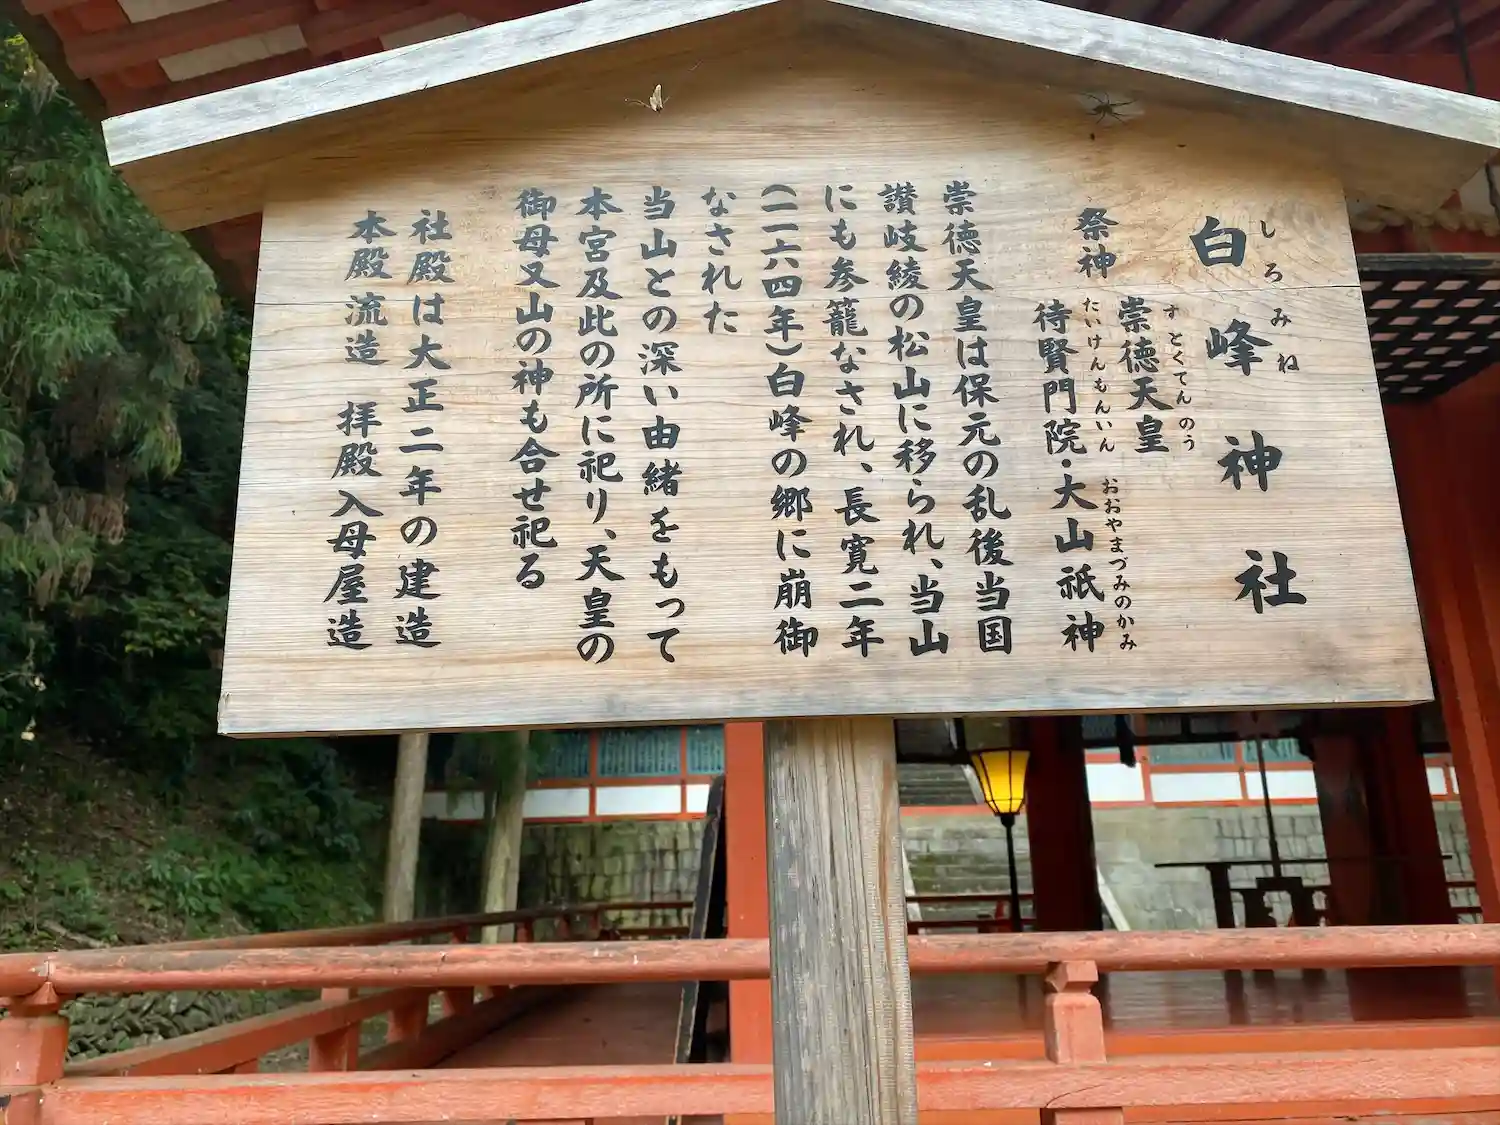 しろみね
白峰神社
祭神
すとくてんのう
崇徳天皇
たいけんもんいん おおやまづみのかみ
待賢門院・大山祇神
崇徳天皇は保元の乱後当国
讃岐綾の松山に移られ、当山
にも参籠なされ、長寛二年
(一一六四年)白峰の郷に崩御
なされた
当山との深い由緒をもって
本宮及此の所に祀り、天皇の
御母又山の神も合せ祀る
社殿は大正二年の建造
本殿 流造 拝殿入母屋造